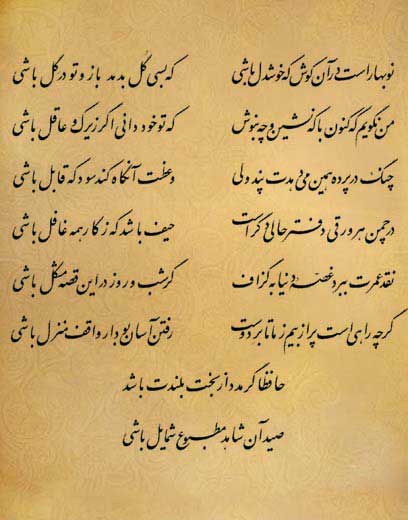 نوبهار است در آن کوش که خوشدل باشی که بسی گل بدمد باز و تو در گل باشی
من نگویم که کنون با که نشین و چه بنوش که تو خود دانی اگر زیرک و عاقل باشی
چنگ در پرده همین می‌دهدت پند ولی وعظت آنگاه کند سود که قابل باشی
در چمن هر ورقی دفتر حالی دگر است حیف باشد که ز کار همه غافل باشی
نقد عمرت ببرد غصه دنیا به گزاف گر شب و روز در این قصه مشکل باشی
گرچه راهی است پر از بیم ز ما تا بر دوست رفتن آسان بود ار واقف منزل باشی
حافظا گر مدد از بخت بلندت باشد
صید آن شاهد مطبوع شمایل باشی